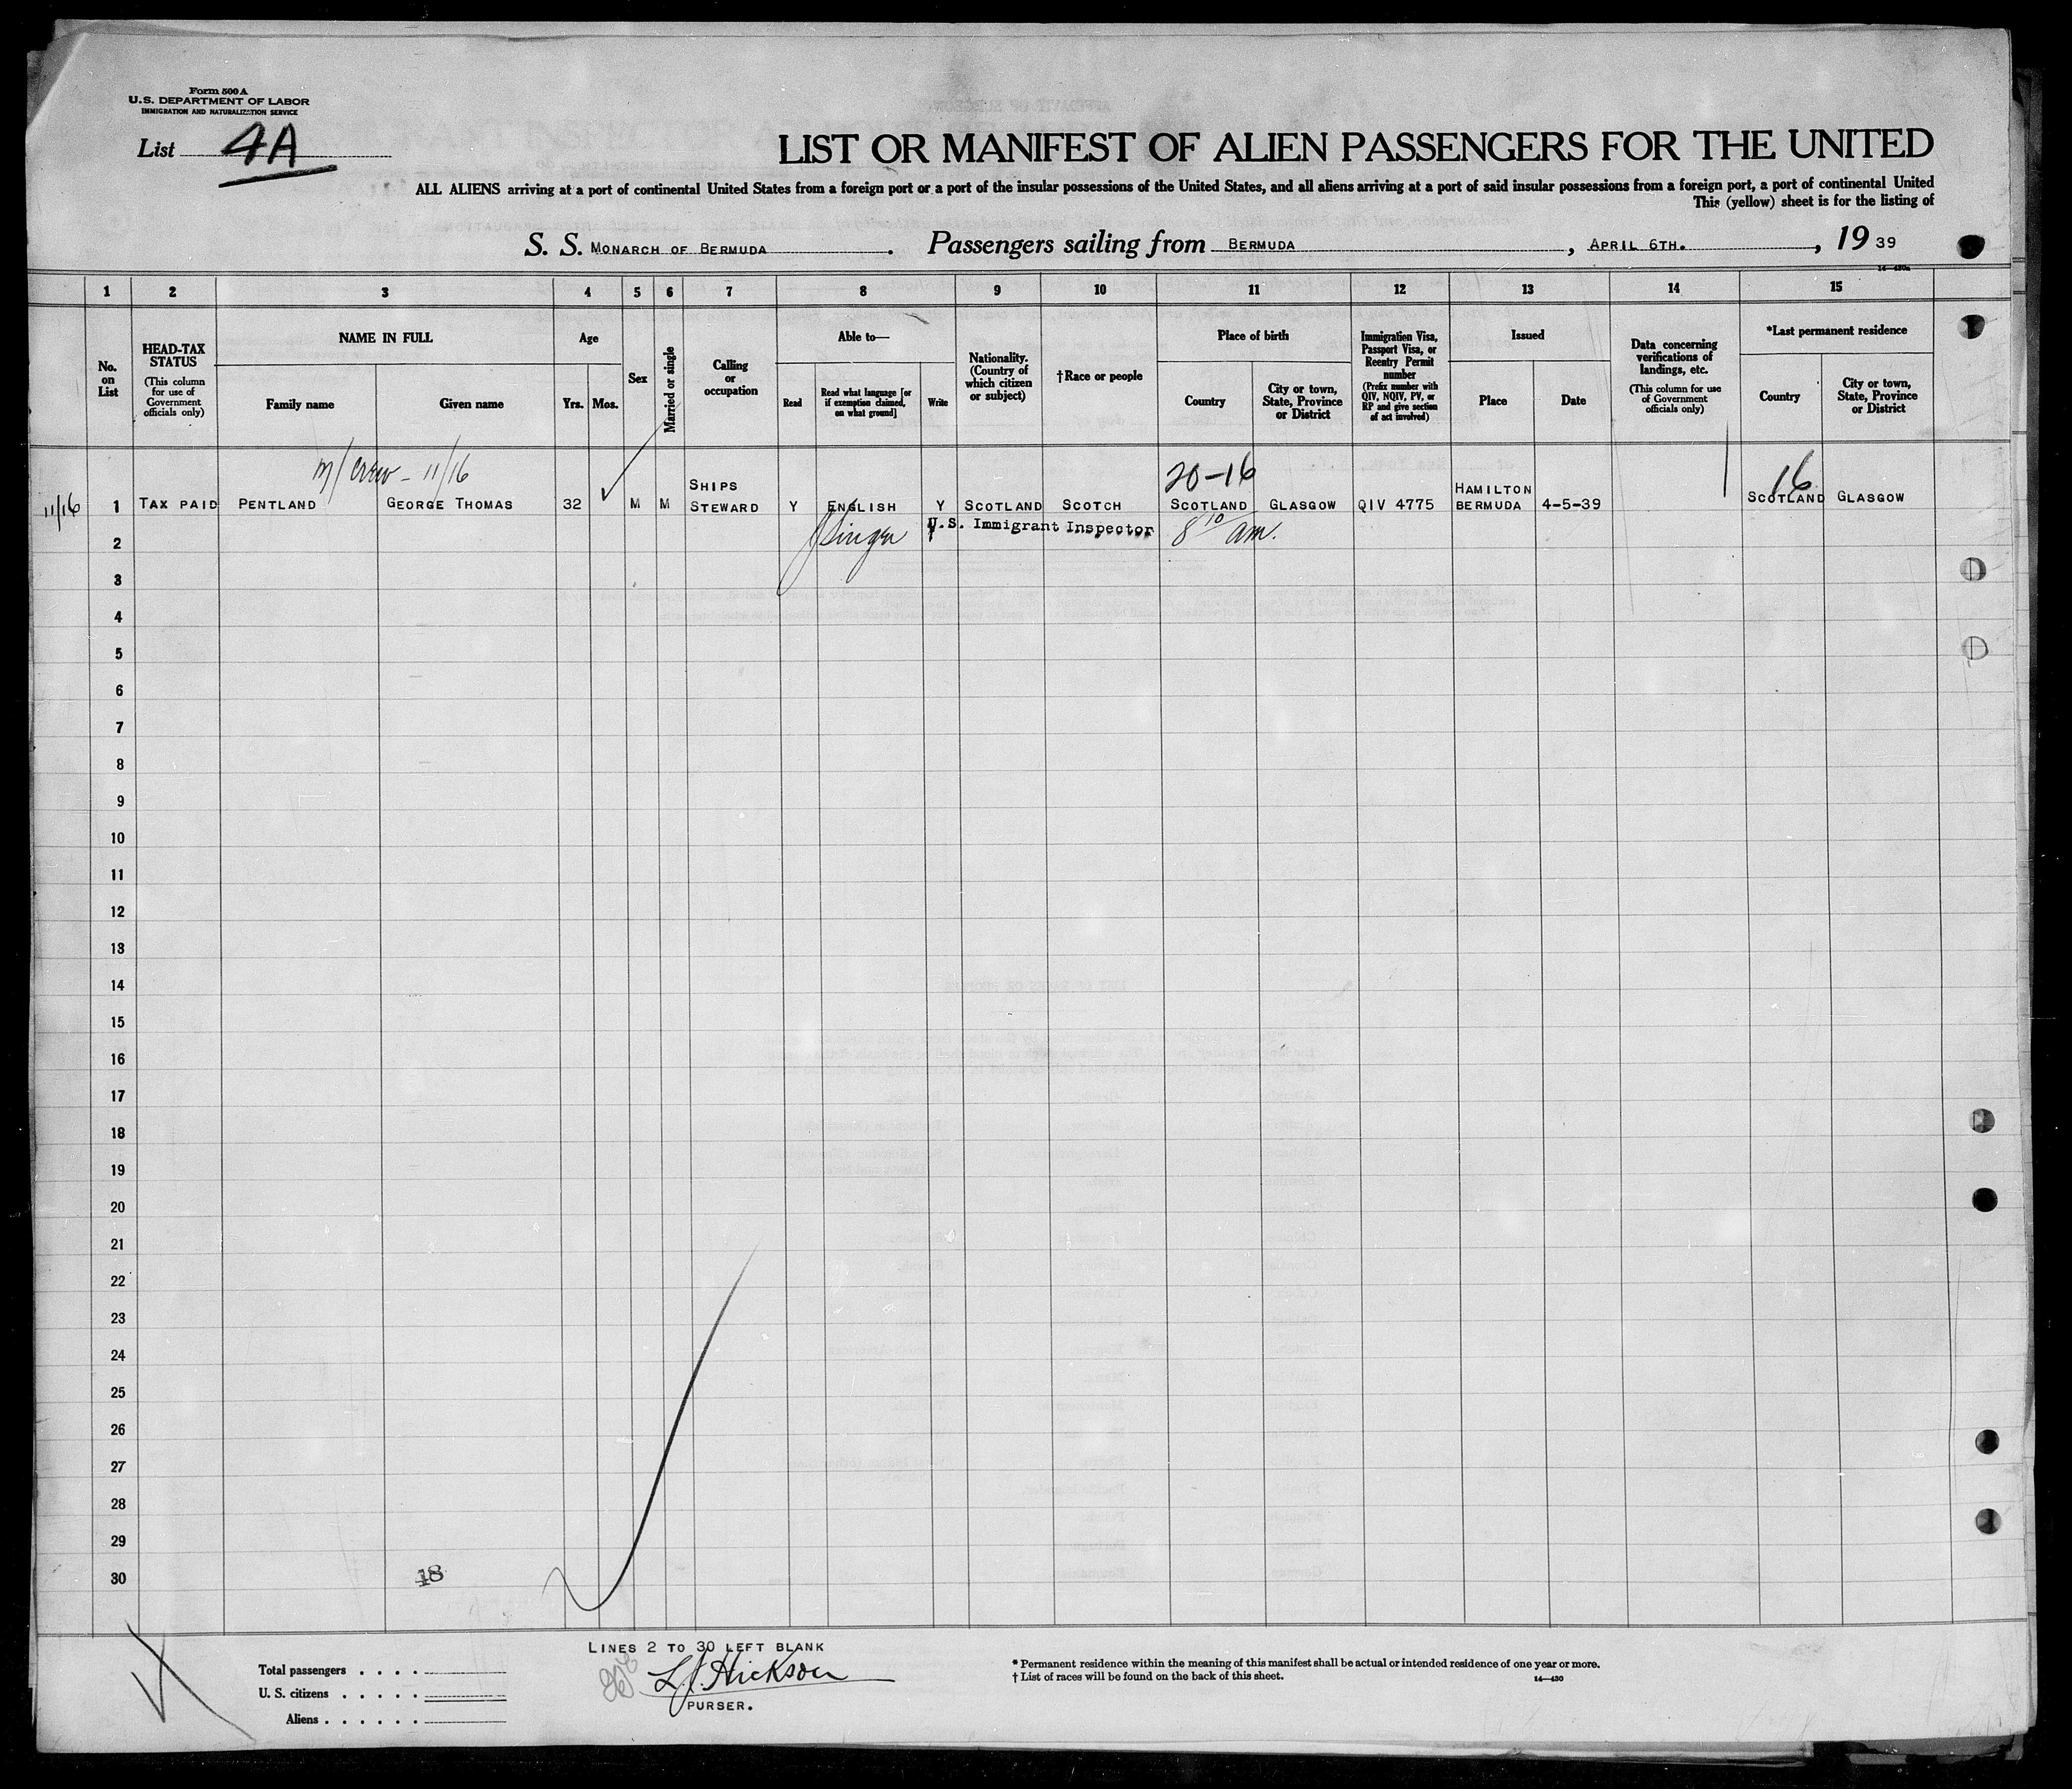 Form 500 A
U.S. DEPARTMENT OF LABOR
IMMIGRATION AND NATURALIZATION SERVICE
List 4A
LIST OR MANIFEST OF ALIEN PASSENGERS FOR THE UNITED
ALL ALIENS arriving at a port of continental United States from a foreign port or a port of the insular possessions of the United States, and all aliens arriving at a port of said insular possessions from a foreign port, a port of continental United
This (yellow) sheet is for the listing of
S. S. MONARCH OF BERMUDA. Passengers sailing from BERMUDA, APRIL 6TH., 19 39
1 2 3 4 5 6 7 8 9 10 11 12 13 14 15
No. on List
HEAD-TAX STATUS
(This column for use of Government officials only)
NAME IN FULL
Family name
Given name
Age
Yrs.
Mos.
Sex
Married or single
Calling or occupation
Able to—
Read
Read what language [or if exemption claimed, on what ground]
Write
Nationality. (Country of which citizen or subject)
†Race or people
Place of birth
Country
City or town, State, Province or District
Immigration Visa, Passport Visa, or Reentry Permit number
(Prefix number with QIV, NQIV, PV, or RP and give section of act involved)
Issued
Place
Date
Data concerning verifications of landings, etc.
(This column for use of Government officials only)
*Last permanent residence
Country
City or town, State, Province or District
m/ Crew - 11/16
20-16
16
11/16 1 TAX PAID PENTLAND GEORGE THOMAS 32 M M SHIPS STEWARD Y ENGLISH Y SCOTLAND SCOTCH SCOTLAND GLASGOW QIV 4775 HAMILTON BERMUDA 4-5-39 SCOTLAND GLASGOW
2 U.S. Immigrant Inspector 8 10 am.
3
4
5
6
7
8
9
10
11
12
13
14
15
16
17
18
19
20
21
22
23
24
25
26
27
28
29
30 18
LINES 2 TO 30 LEFT BLANK
L.J. Hickson
PURSER.
Total passengers . . . .
U. S. citizens . . . . .
Aliens . . . . . .
* Permanent residence within the meaning of this manifest shall be actual or intended residence of one year or more.
† List of races will be found on the back of this sheet.
14—430